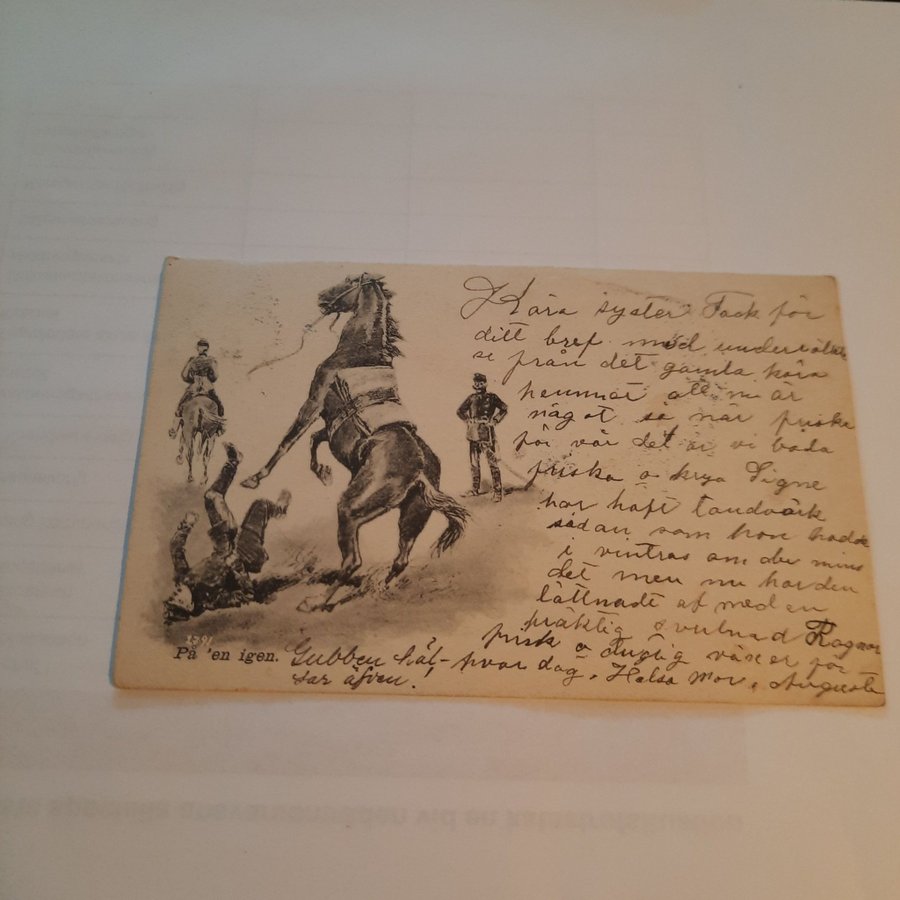 Kära syster Tack för
ditt bref med underrättel
se från det gamla kära
hemmet att ni är
något så när friska
för vår det är vi båda
friska o krya Signe
har haft tandvärk
sådan som hon hade
i vintras om du mins
det men nu har den
lättnadt af med en
präktig svulnad Ragnar
frisk o duglig växer för
hvar dag. Helsa Mor. Augusta
1391
På 'en igen.
Gubben häl-
sar äfven!